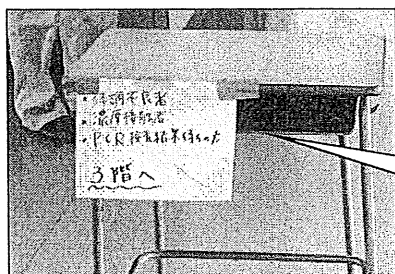 ・体調不良者
・濃厚接触者
・PCR検査結果待ちの方
3階へ